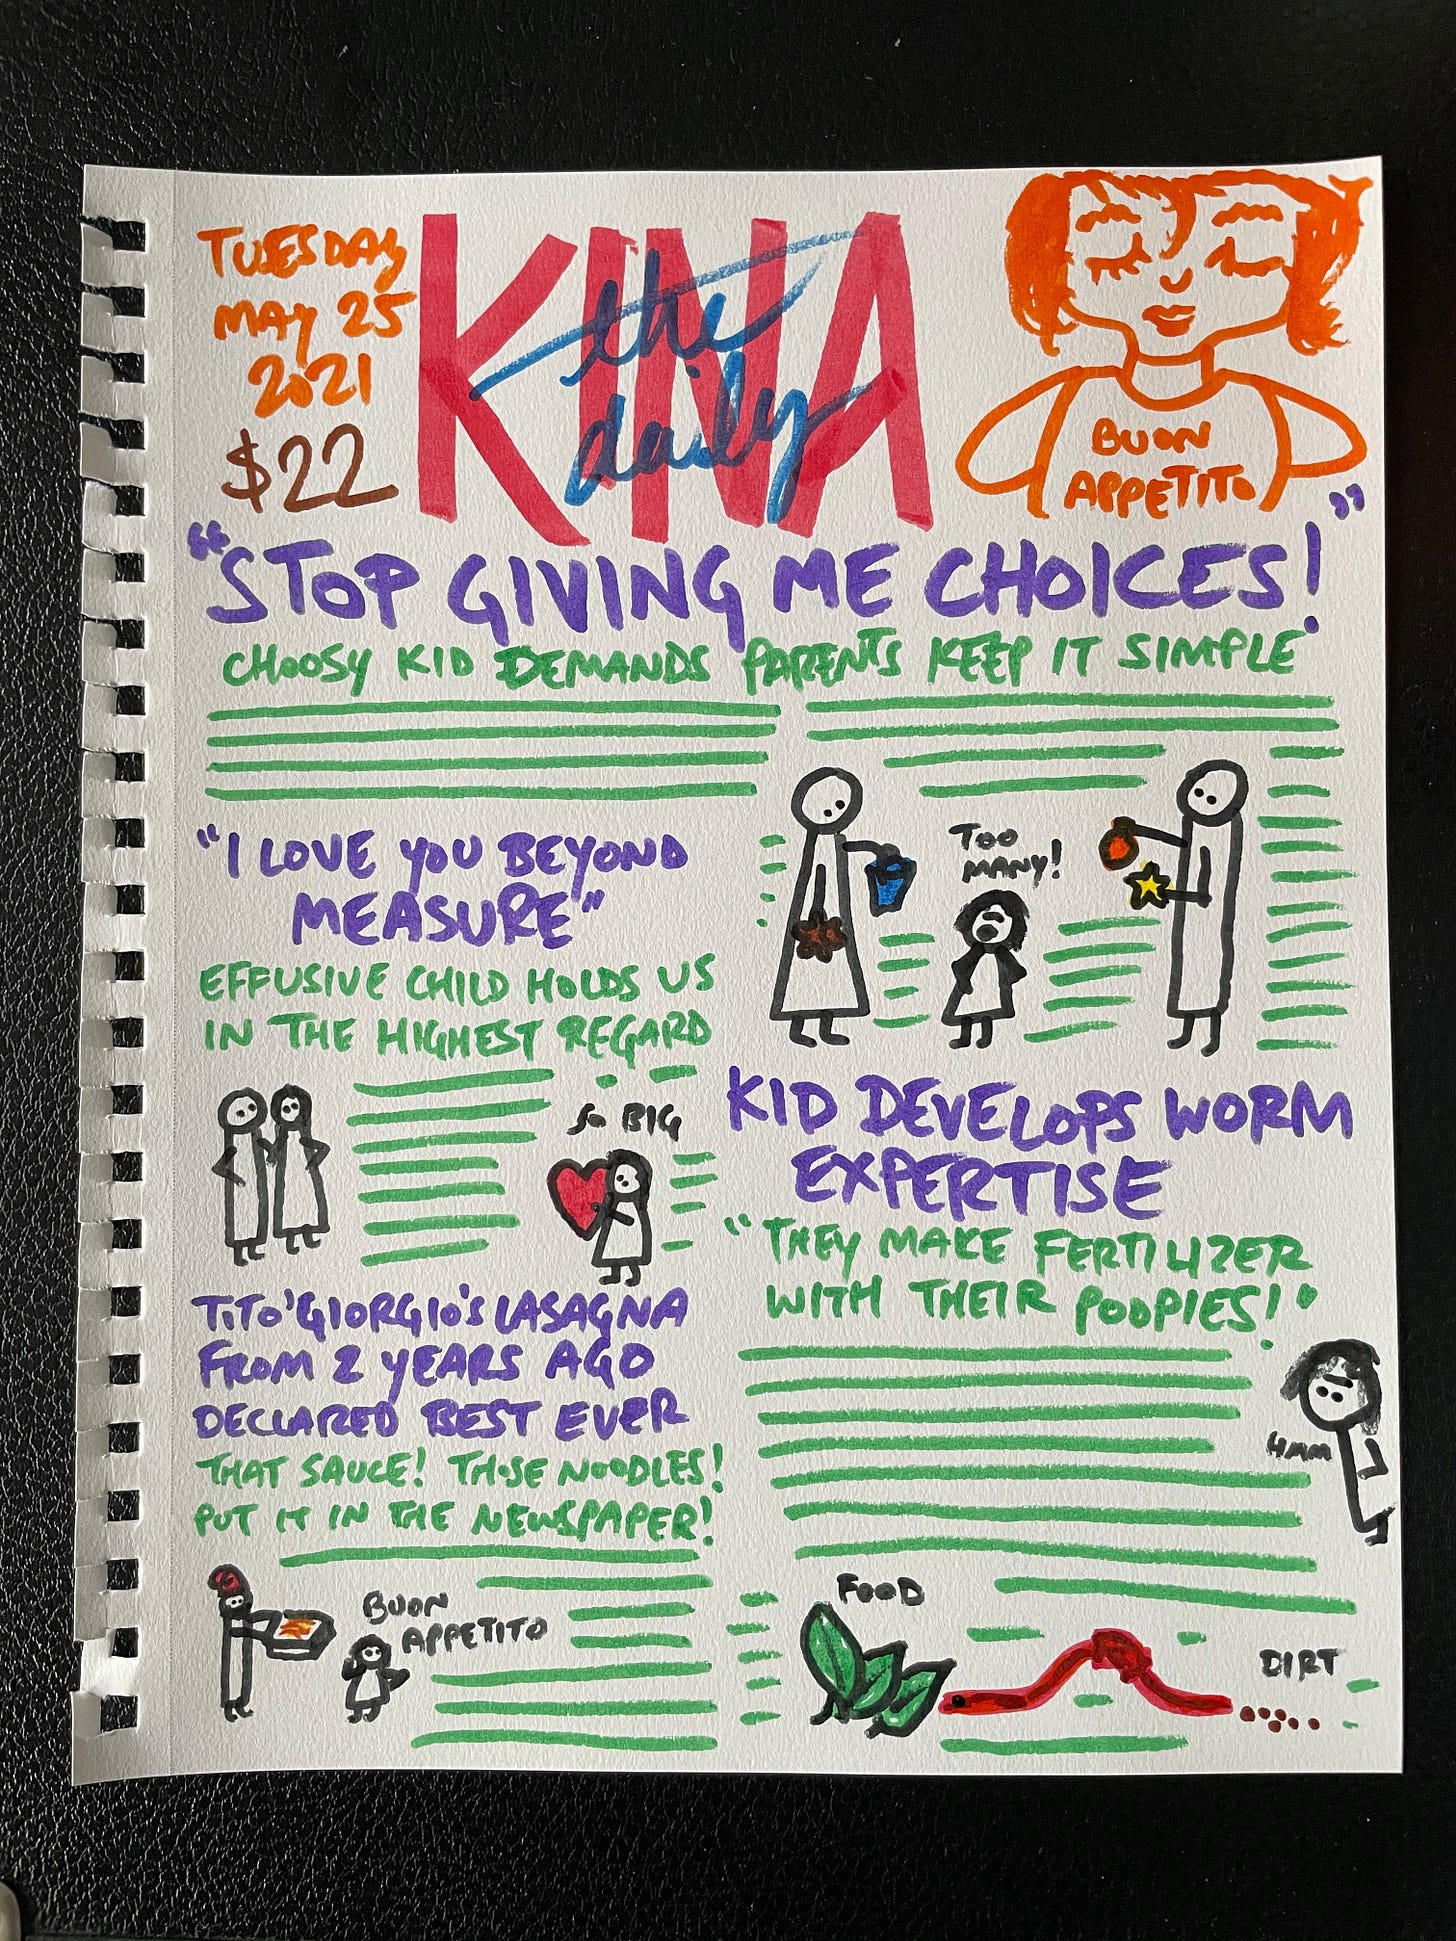 TUESDAY
MAY 25
2021
$22
the
daily
KINA
BUON
APPETITO
"STOP GIVING ME CHOICES!"
CHOOSY KID DEMANDS PARENTS KEEP IT SIMPLE
TOO
MANY!
"I LOVE YOU BEYOND
MEASURE"
EFFUSIVE CHILD HOLDS US
IN THE HIGHEST REGARD
SO BIG
KID DEVELOPS WORM
EXPERTISE
"THEY MAKE FERTILIZER
WITH THEIR POOPIES!"
HMM
FOOD
DIRT
TITO GIORGIO'S LASAGNA
FROM 2 YEARS AGO
DECLARED BEST EVER
THAT SAUCE! THOSE NOODLES!
PUT IT IN THE NEWSPAPER!
BUON
APPETITO